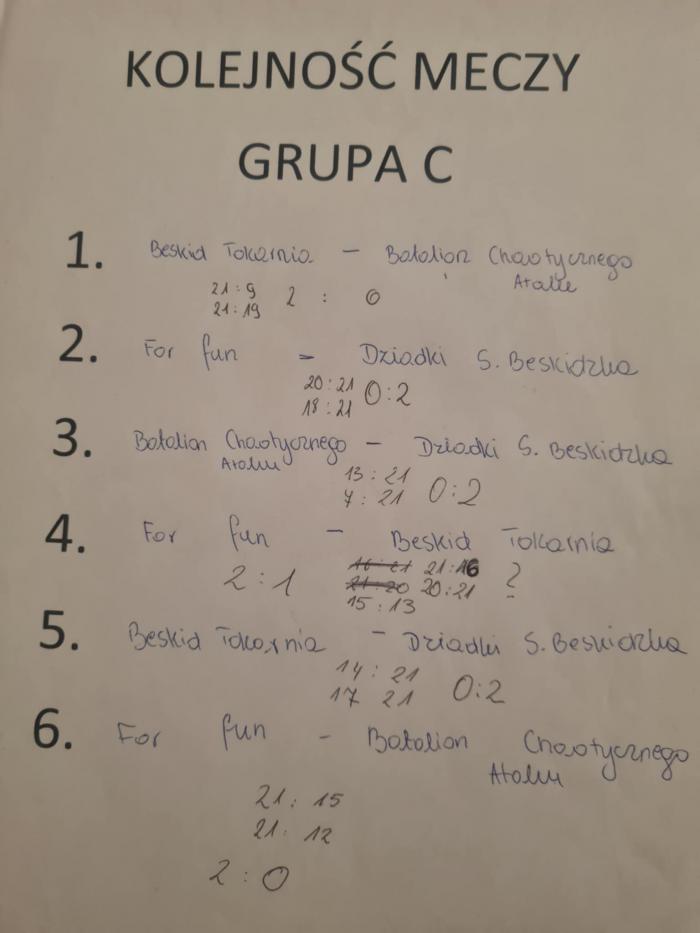 KOLEJNOŚĆ MECZY
GRUPA C
1. Beskid Tokarnia - Batalion Chaotycznego
Ataku
21:9 2 : 0
21:19
2. For fun - Dziadki S. Beskidzka
20:21 0:2
18:21
3. Batalion Chaotycznego - Dziadki S. Beskidzka
Ataku
13:21 0:2
7:21
4. For fun - Beskid Tokarnia
2:1 16-21 21:16 ?
21-20 20:21
15:13
5. Beskid Tokarnia - Dziadki S. Beskidzka
14:21 0:2
17 21
6. For fun - Batalion Chaotycznego
Ataku
21:15
21:12
2:0